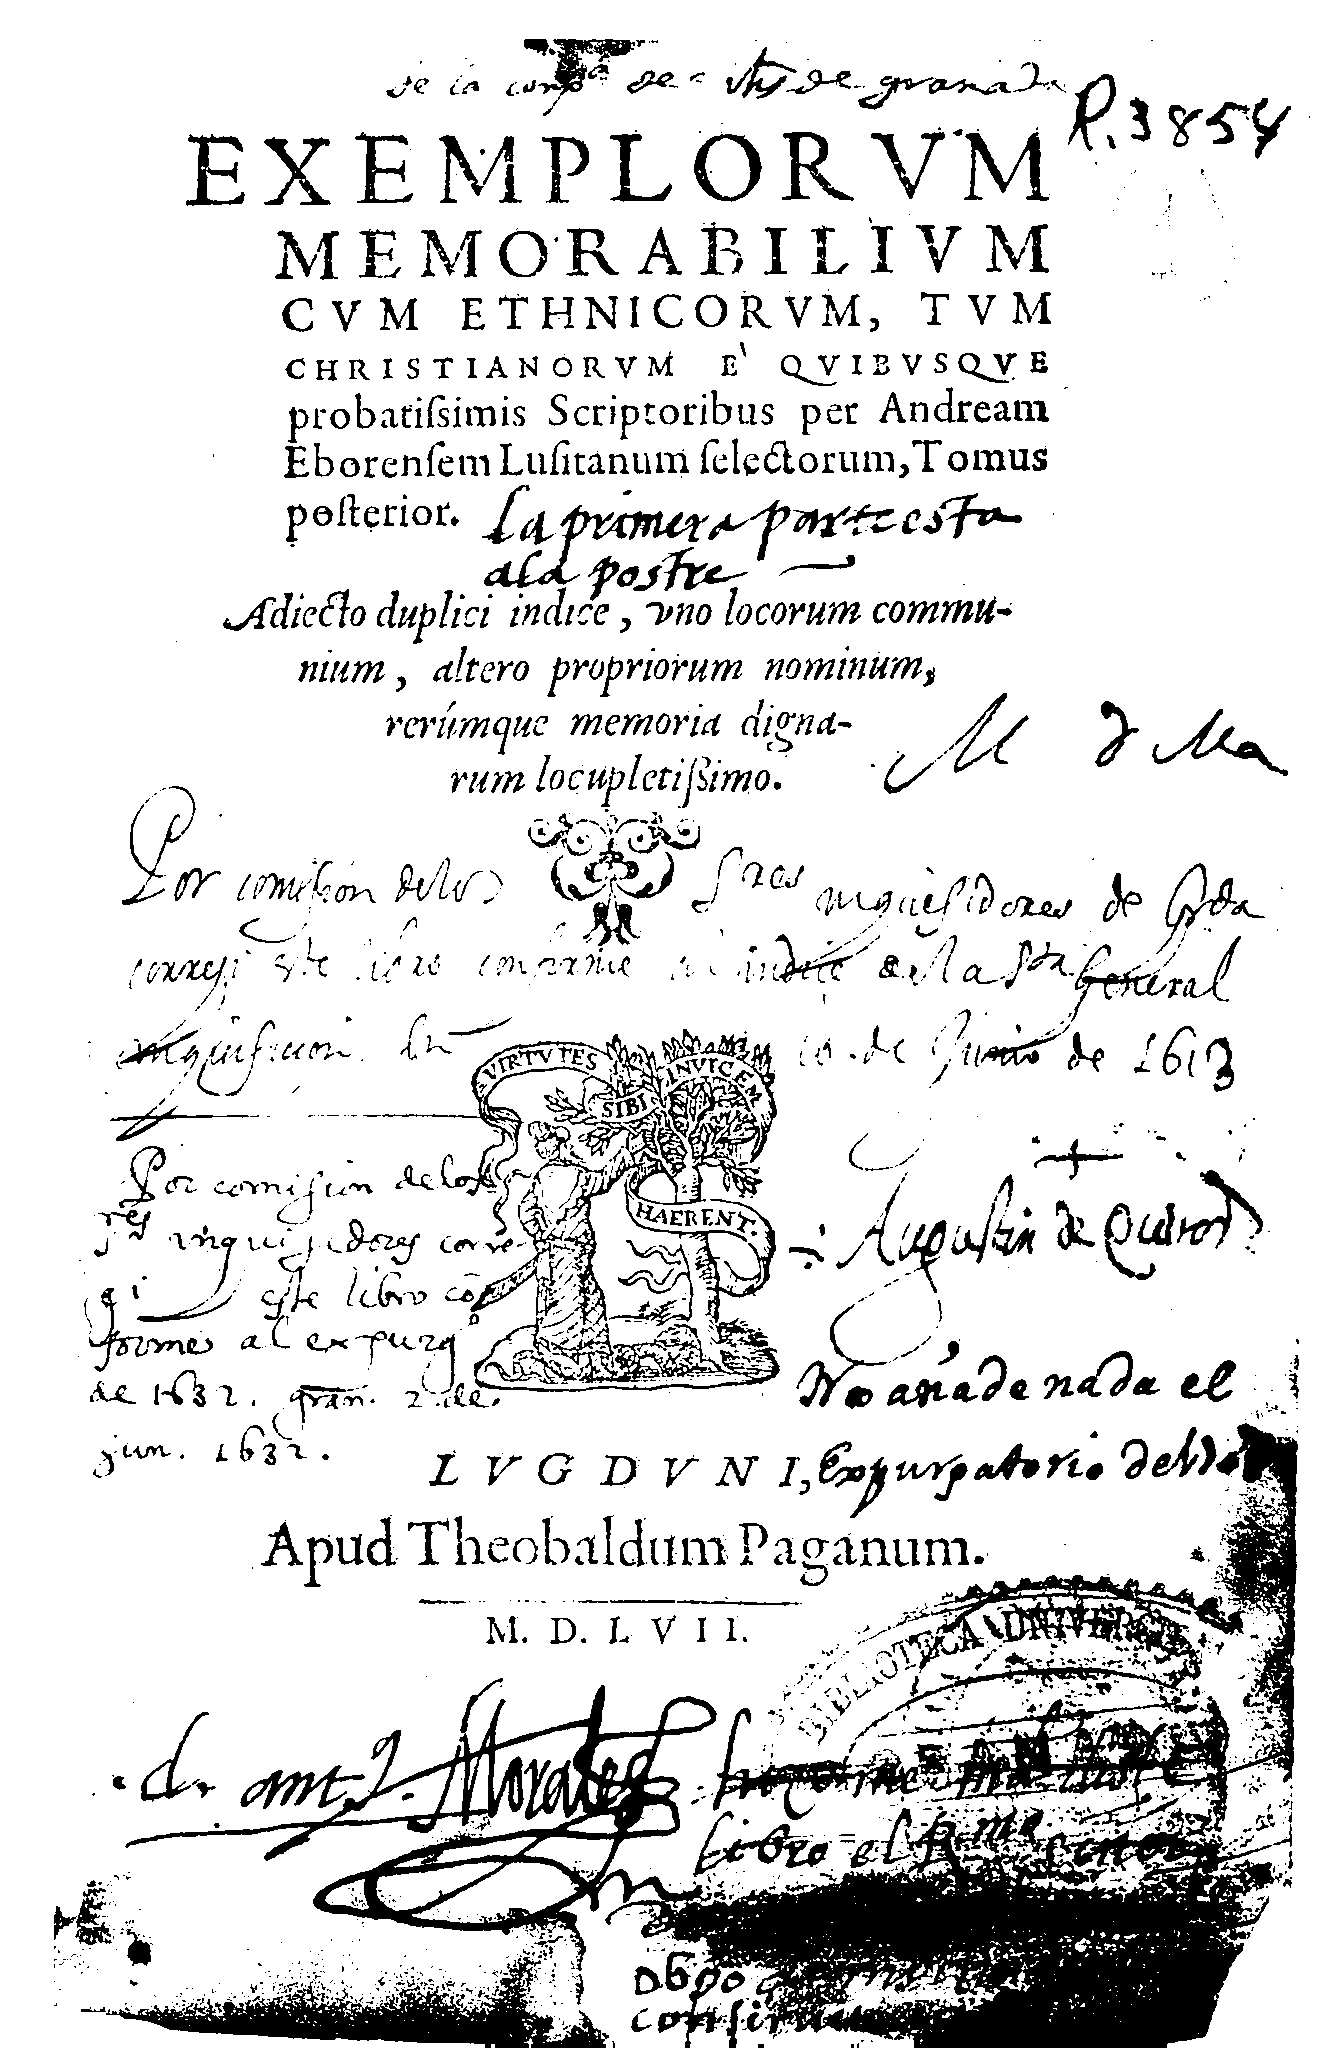 de la compª de Jhs de granada
R. 3854
EXEMPLORVM
MEMORABILIVM
CVM ETHNICORVM, TVM
CHRISTIANORVM E' QVIBVSQVE
probatiſsimis Scriptoribus per Andream
Eborenſem Luſitanum ſelectorum, Tomus
poſterior.
La primera parte esta
a la postre
Adiecto duplici indice, vno locorum commu-
nium, altero propriorum nominum,
rerúmque memoria digna-
rum locupletiſsimo.
M d Ma
Por comision de los Sres inquisidores de Grda
corregi este libro conforme al indice de la Sta General
inquisicion. En 10 de Junio de 1613
VIRTVTES
SIBI
INVICEM
HAERENT.
Augustin de Quiros
Por comision de los
sres inquisidores corre-
gi este libro cō
forme al expurgº
de 1632. gran. 2 de
jun. 1632.
No añade nada el
Expurgatorio del
LVGDVNI,
Apud Theobaldum Paganum.
M. D. LVII.
BIBLIOTECA UNIVERSIT
dr ant. Morales
libro el Rmo Señor
obpo